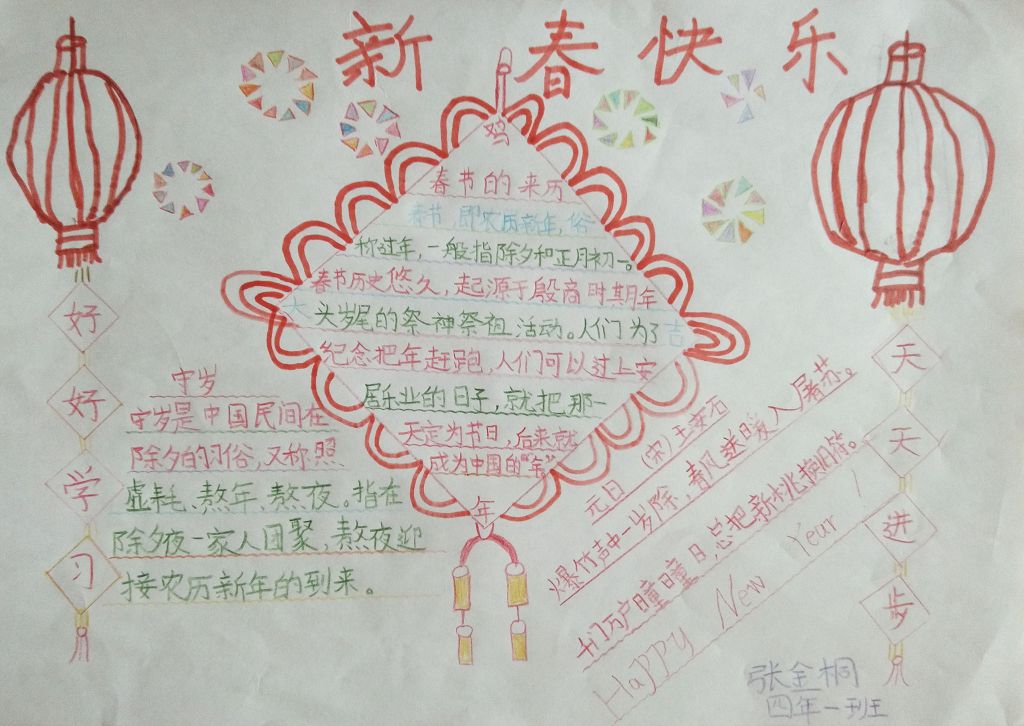 新春快乐
好好学习
鸡
春节的来历
春节,即农历新年,俗
称过年,一般指除夕和正月初一。
春节历史悠久,起源于殷商时期年
大
头岁尾的祭神祭祖活动。人们为了
吉
纪念把年赶跑,人们可以过上安
居乐业的日子,就把那一
天定为节日,后来就
成为中国的“年”
年
守岁
守岁是中国民间在
除夕的习俗,又称照
虚耗、熬年、熬夜。指在
除夕夜一家人团聚,熬夜迎
接农历新年的到来。
元日 (宋)王安石
爆竹声中一岁除,春风送暖入屠苏。
千门万户曈曈日,总把新桃换旧符。
HaPPy New Year!
天天进步
张金桐
四年一班